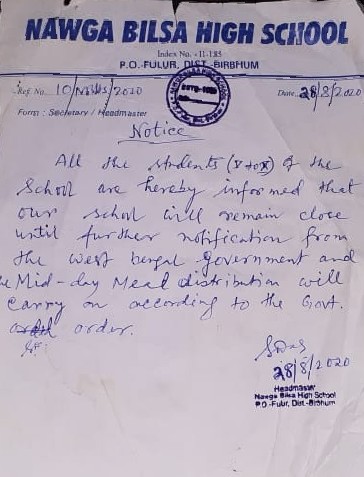 NAWGA BILSA HIGH SCHOOL
Index No. -II-185
P.O.-FULUR, DIST-BIRBHUM
Ref. No. 10/NBHS/2020 Date. 28/8/2020
Form : Secretary / Headmaster
Notice
All the students (V to X) of the
School are hereby informed that
our school will remain close
until further notification from
the West bengal Government and
the Mid-day Meal distribution will
carry on according to the Govt.
order.
28/8/2020
Headmaster
Nawga Bilsa High School
P.O.-Fulur, Dist.-Birbhum